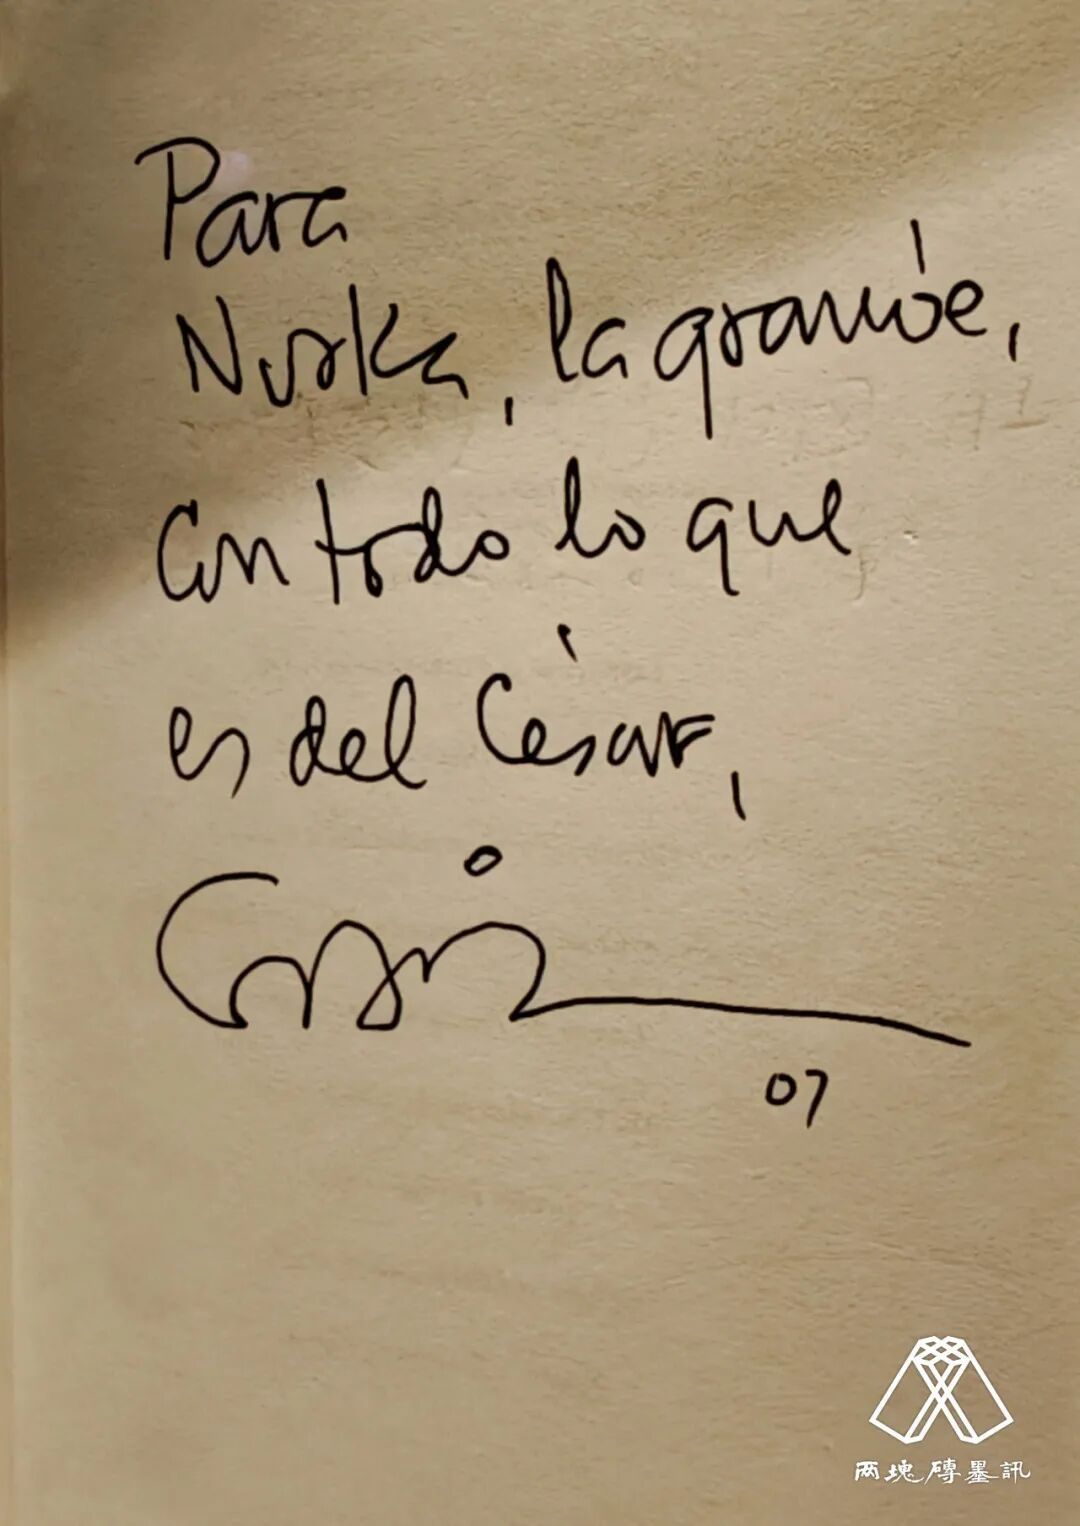 Para
Nurka, la grande,
Con todo lo que
es del César,
07
两塊磚墨訊